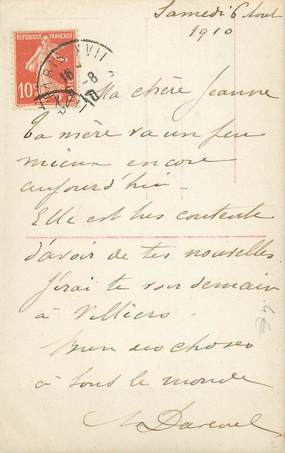 Samedi 6 Aout
1910
REPUBLIQUE FRANÇAISE
10c
PARIS XVII
Ma chère Jeanne
Ta mère va un peu
mieux encore
aujourd'hui.
Elle est très contente
d'avoir de tes nouvelles.
J'irai te voir demain
à Villiers.
Bien des choses
à tout le monde